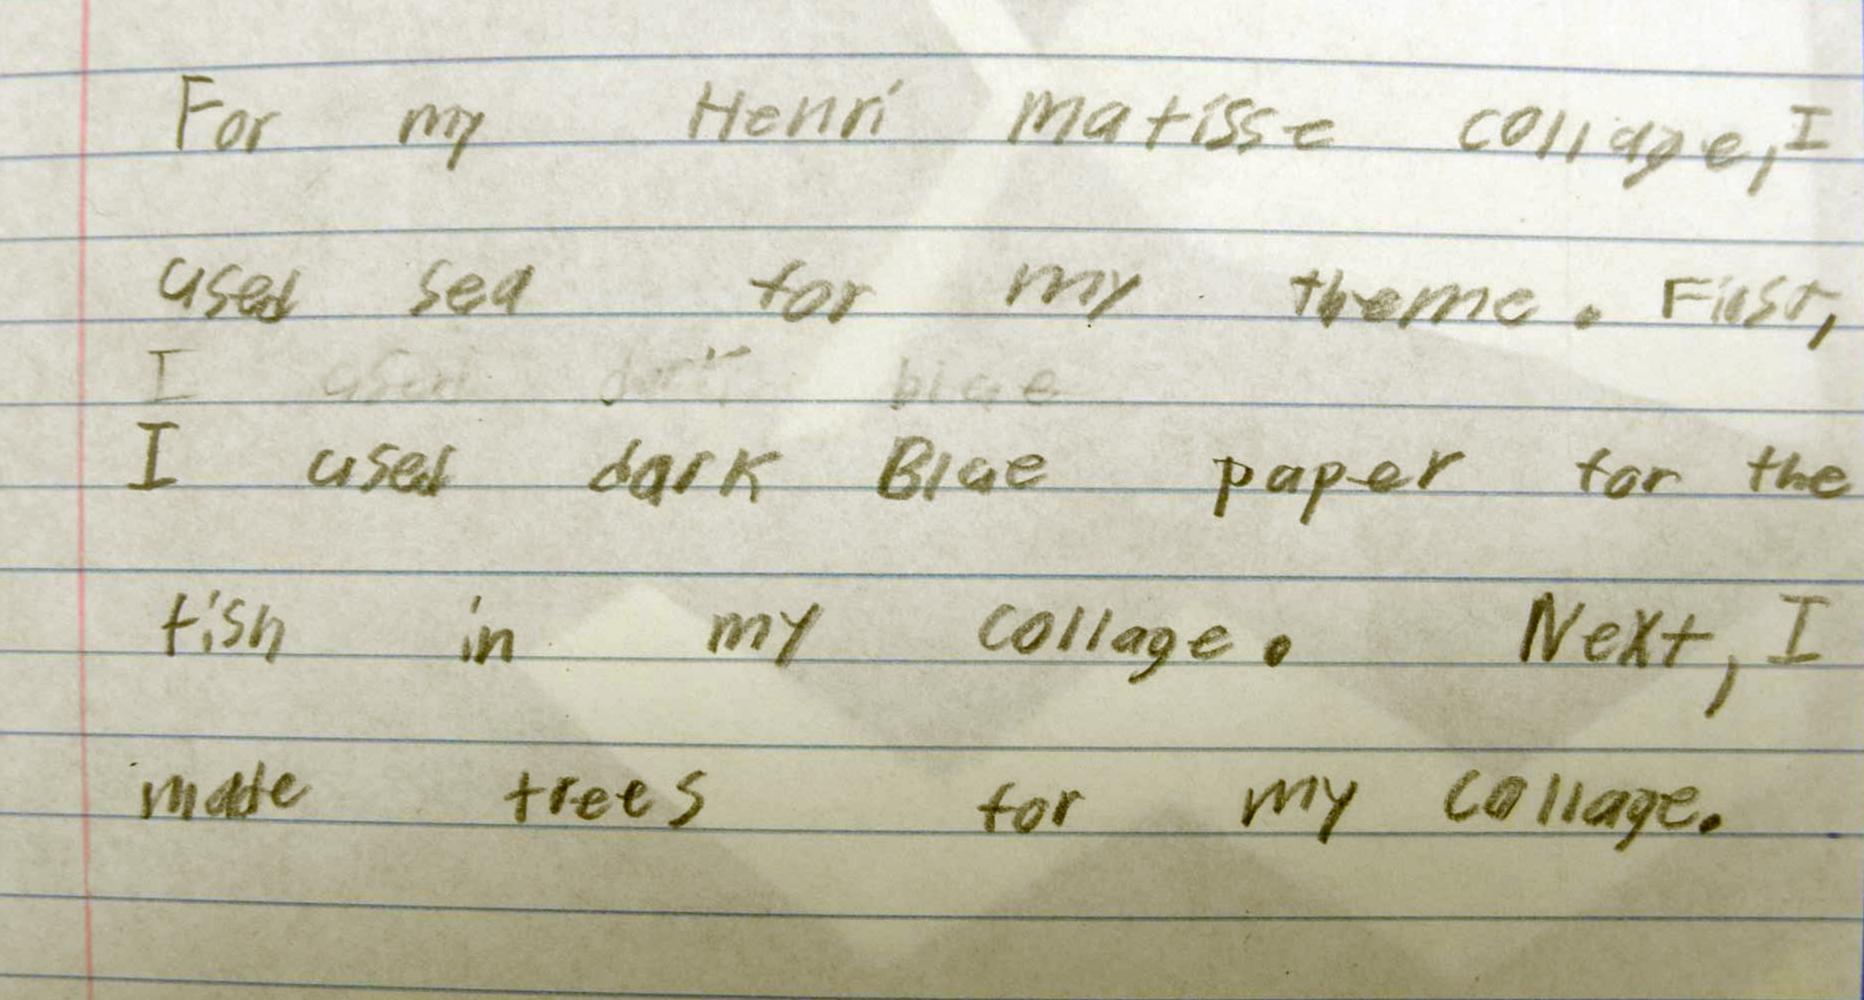 For my Henri Matisse collage, I
used sea for my theme. First,
I used dark blue
I used dark Blue paper for the
fish in my collage. Next, I
made trees for my collage.